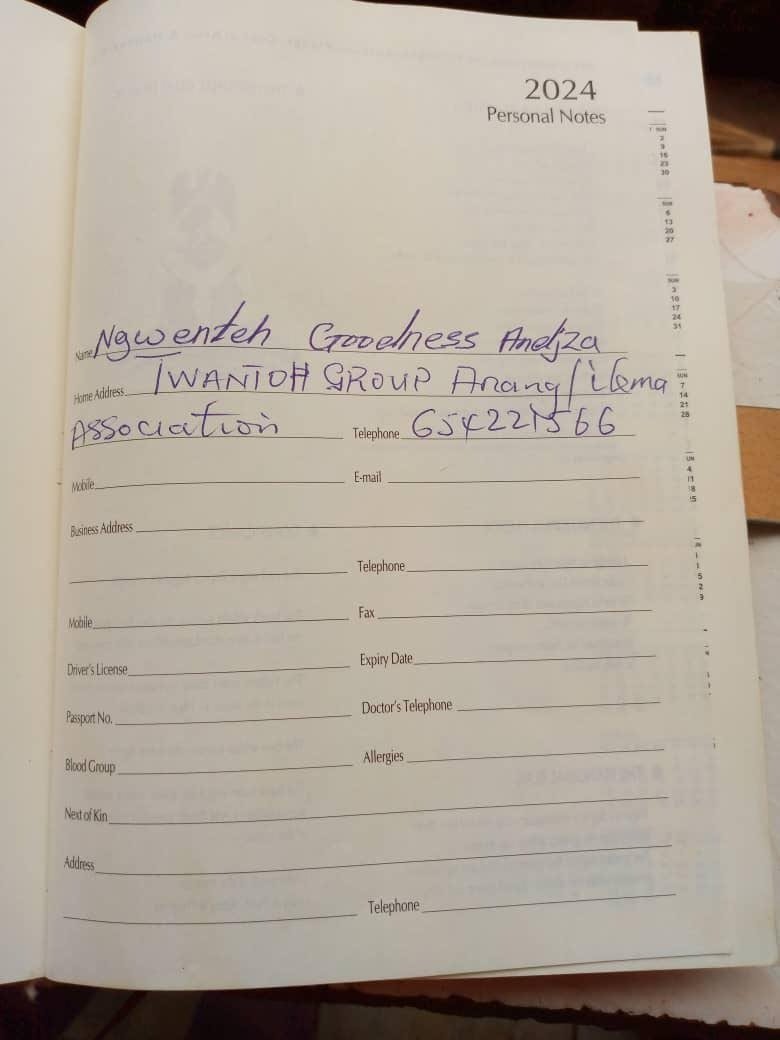 2024
Personal Notes
Name Ngwenteh Goodness Andjza
Home Address TWANTOH GROUP Anang/
Association Telephone 654221566
Mobile E-mail
Business Address
Telephone
Mobile Fax
Driver's License Expiry Date
Passport No. Doctor's Telephone
Blood Group Allergies
Next of Kin
Address
Telephone